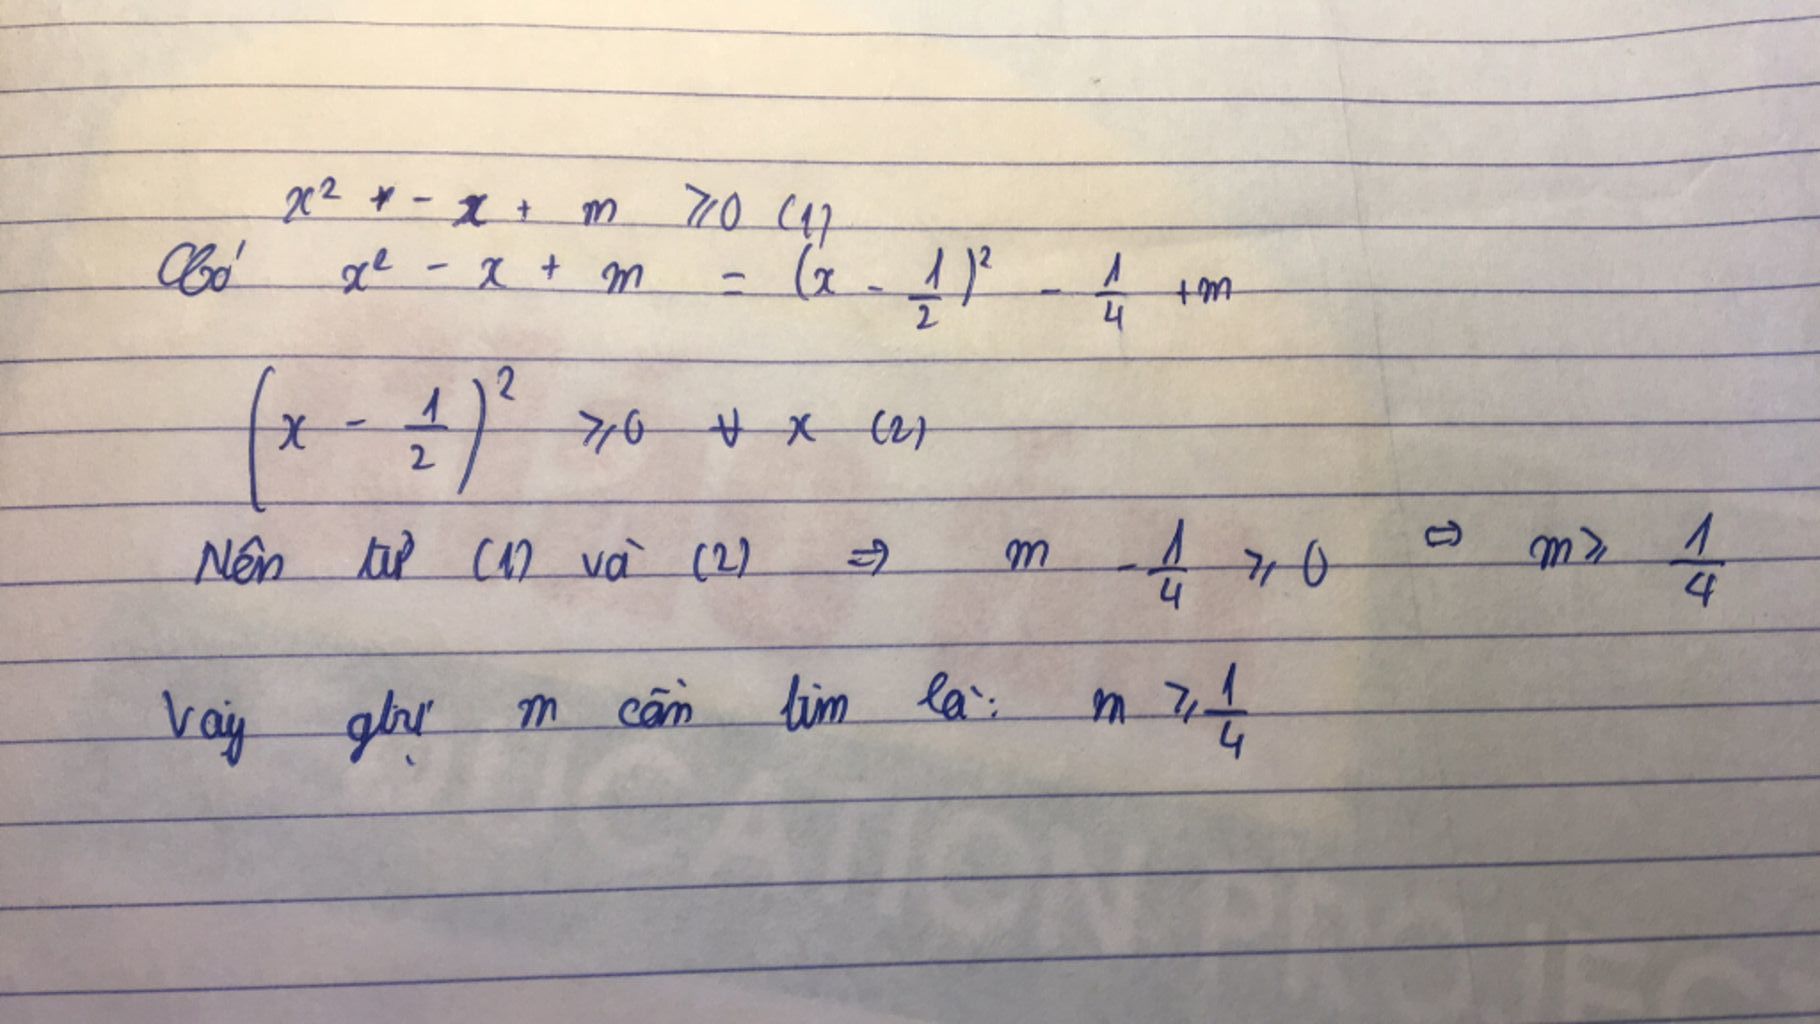 x² - x + m ≥ 0 (1)
Có x² - x + m = (x - 1/2)² - 1/4 + m
(x - 1/2)² ≥ 0 ∀ x (2)
Nên từ (1) và (2) ⇒ m - 1/4 ≥ 0 ⇔ m ≥ 1/4
Vậy gtrị m cần tìm là: m ≥ 1/4